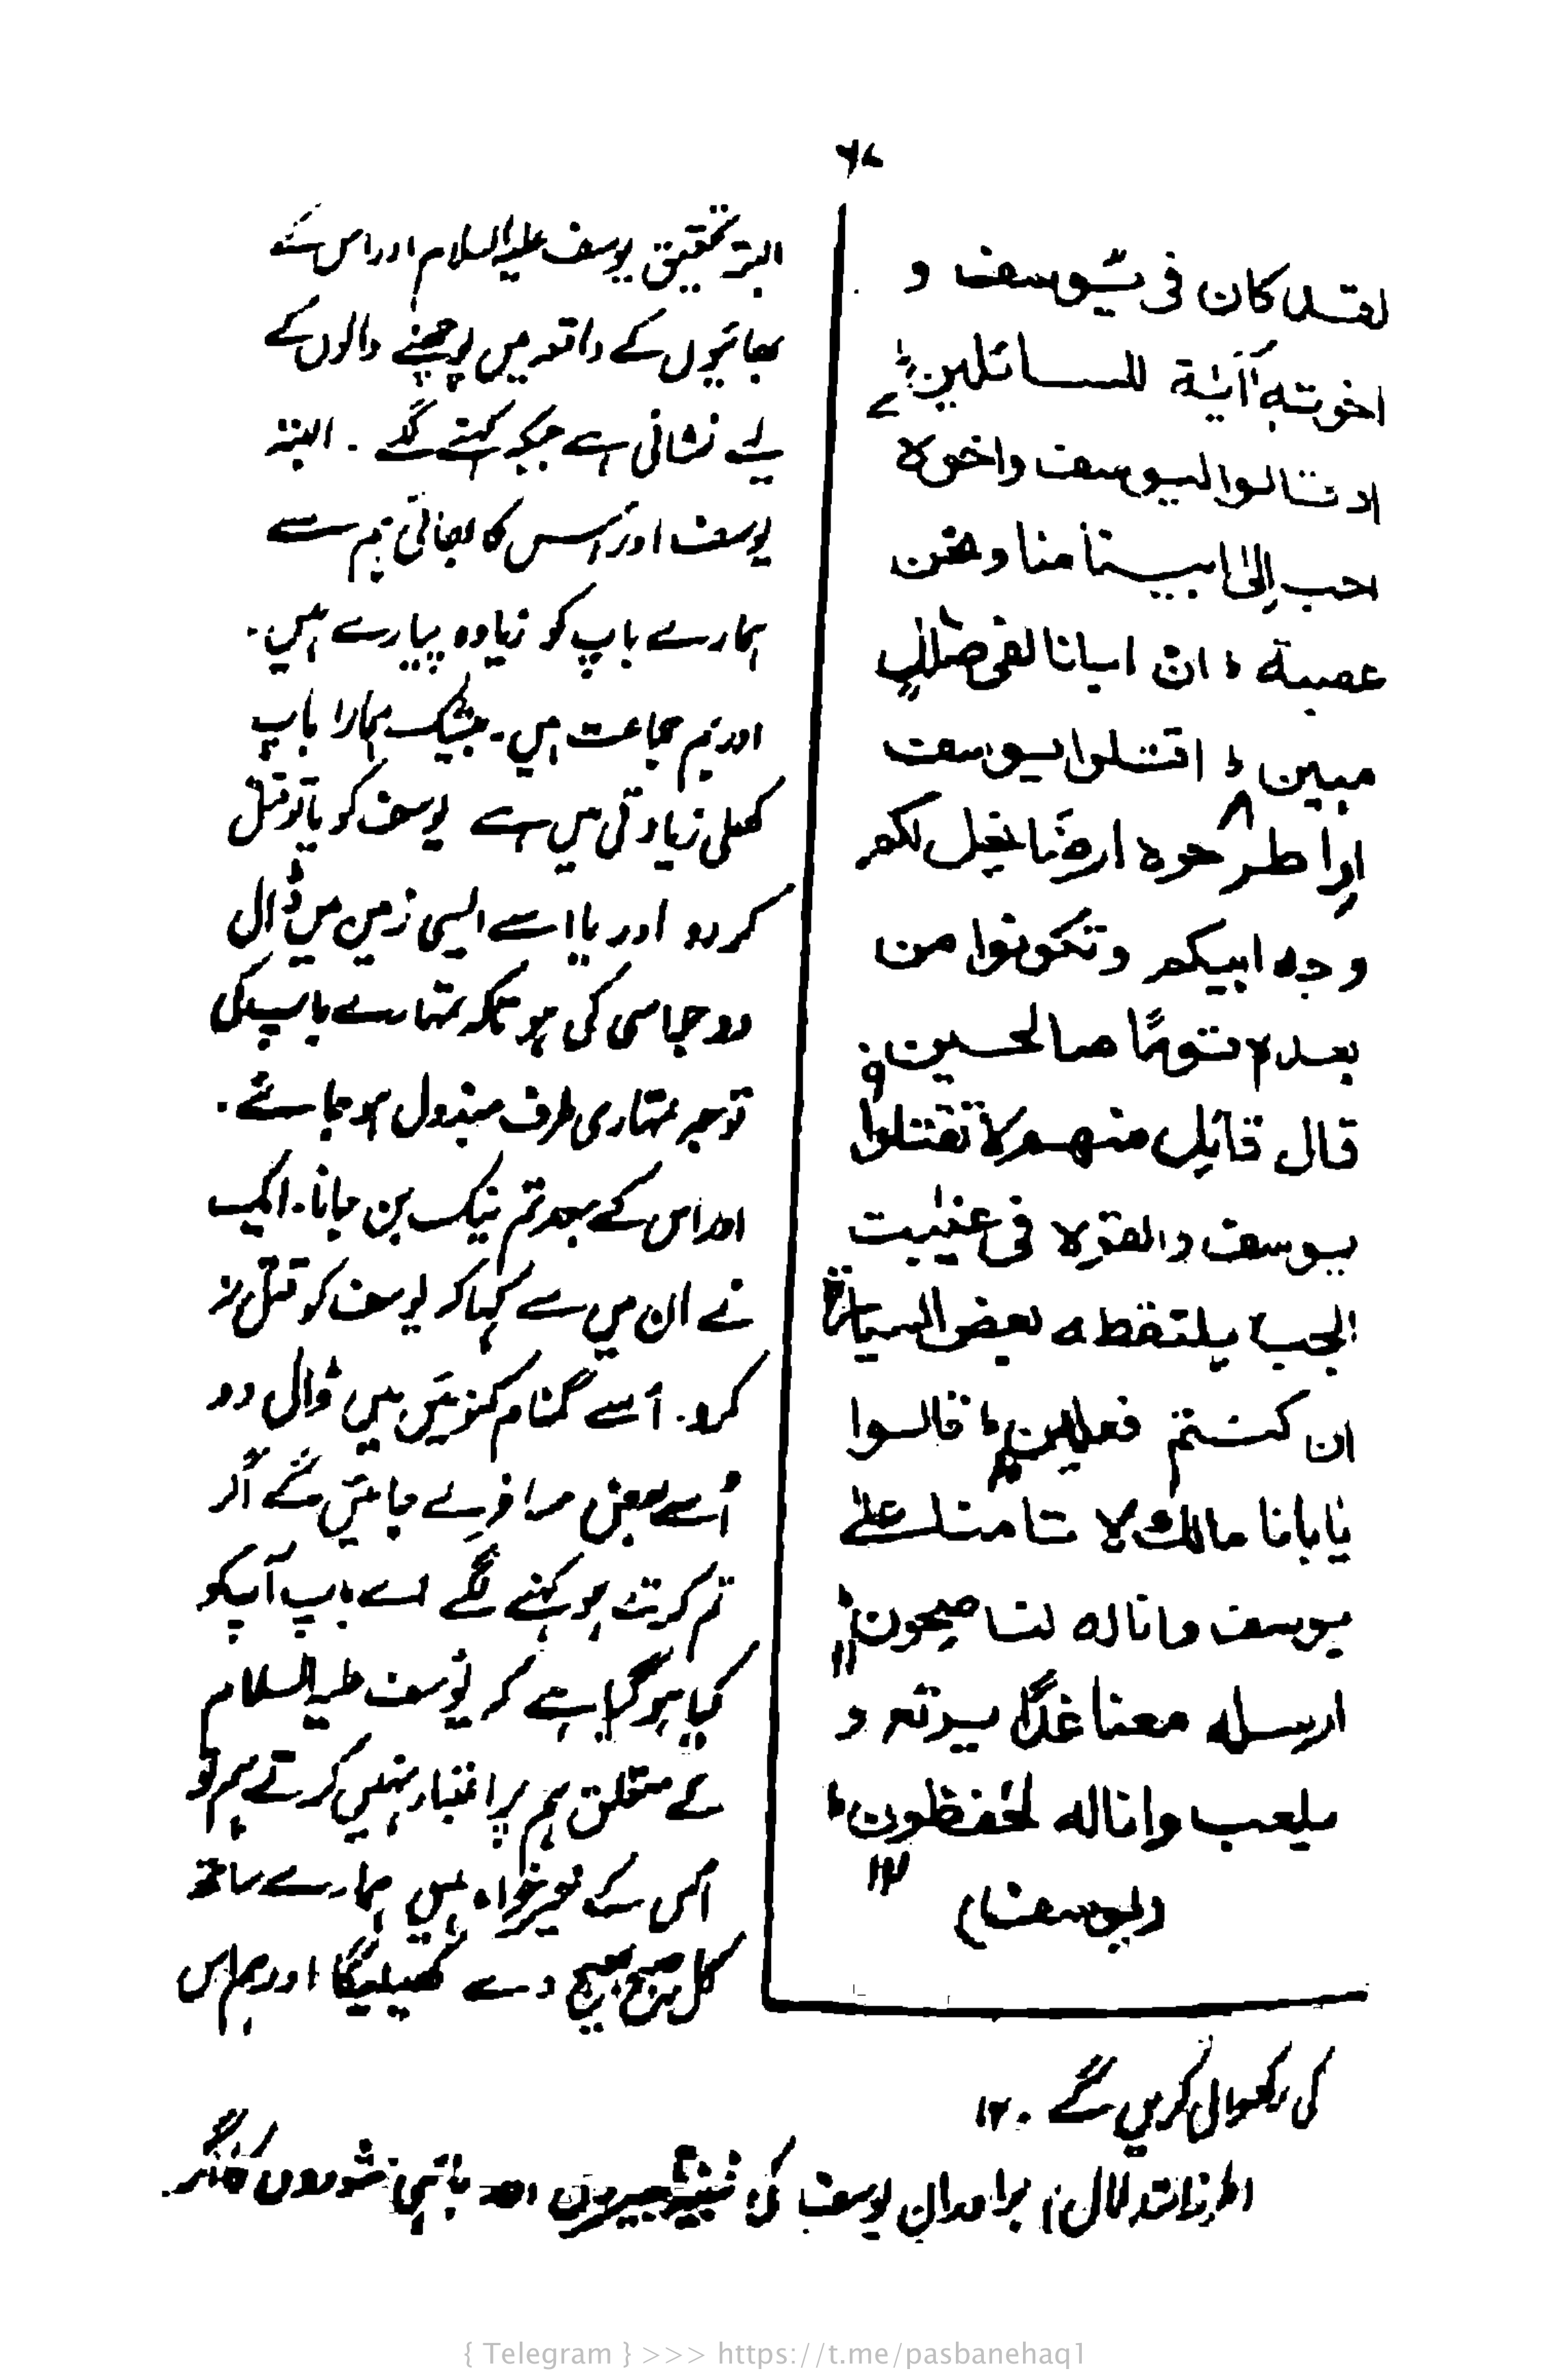 لقد کان فی یوسف و
اخوتہ آیٰة للسائلین ؕ ے
اذ قالوا لیوسف واخوہ
احب اِلیٰ ابینا منا ونحن
عصبة ؕ انّ ابانا لفی ضلٰلٍ
مبین ؕ ۸ اقتلوا یوسف
اوِ اطرحوہ ارضًا یخل لکم
وجہ ابیکم وتکونوا من
بعدہ قومًا صالحین ۹
قال قائل منھم لا تقتلوا
یوسف والقوہ فی غیٰبت
الجب یلتقطہ بعض السیارة
ان کنتم فعلین ؕ قالوا
یٰابانا مالک لا تامنا علیٰ
یوسف وانالہ لناصحون ۱۱
ارسلہ معنا غدًا یرتع و
یلعب وانالہ لحٰفظون ؕ
۱۲
(یوسف)
البتہ تحقیق یوسف علیہ السلام اور اس کے
بھائیوں کے واقعہ میں پوچھنے والوں کے
لیے نشانی ہے جبکہ کہنے لگے ۔ البتہ
یوسف اور اس کا بھائی ہم سے
ہمارے باپ کو زیادہ پیارے ہیں ۔
اور ہم جماعت ہیں ۔ بیشک ہمارا باپ
کھلی زیادتی میں ہے یوسف کو یا تو قتل
کر دو اور یا اسے ایسی زمین میں ڈال
دو جہاں کی ہو تاکہ تمہارے باپ کی
توجہ تمہاری طرف مبذول ہو جائے ۔
اور اس کے بعد تم نیک بن جانا ۔ ایک
نے ان میں سے کہا کہ یوسف کو قتل نہ
کرو ۔ اُسے گمنام کنویں میں ڈال دو
اُسے بعض مسافر لے جائیں گے اگر
تم کرتے ہو کہنے لگے اے باپ آپکو
کیا ہو گیا ہے کہ یُوسف علیہ السلام
کے متعلق ہم پر اعتبار نہیں کرتے ہم تو
اس کے خیرخواہ ہیں ہمارے ساتھ
کل صبح بھیج دے کھیلیگا اور ہم اس
کی رکھوالی کریں گے ۔ ۱۲
برادران یوسف کی اور باتیں
{ Telegram } >>> https://t.me/pasbanehaq1